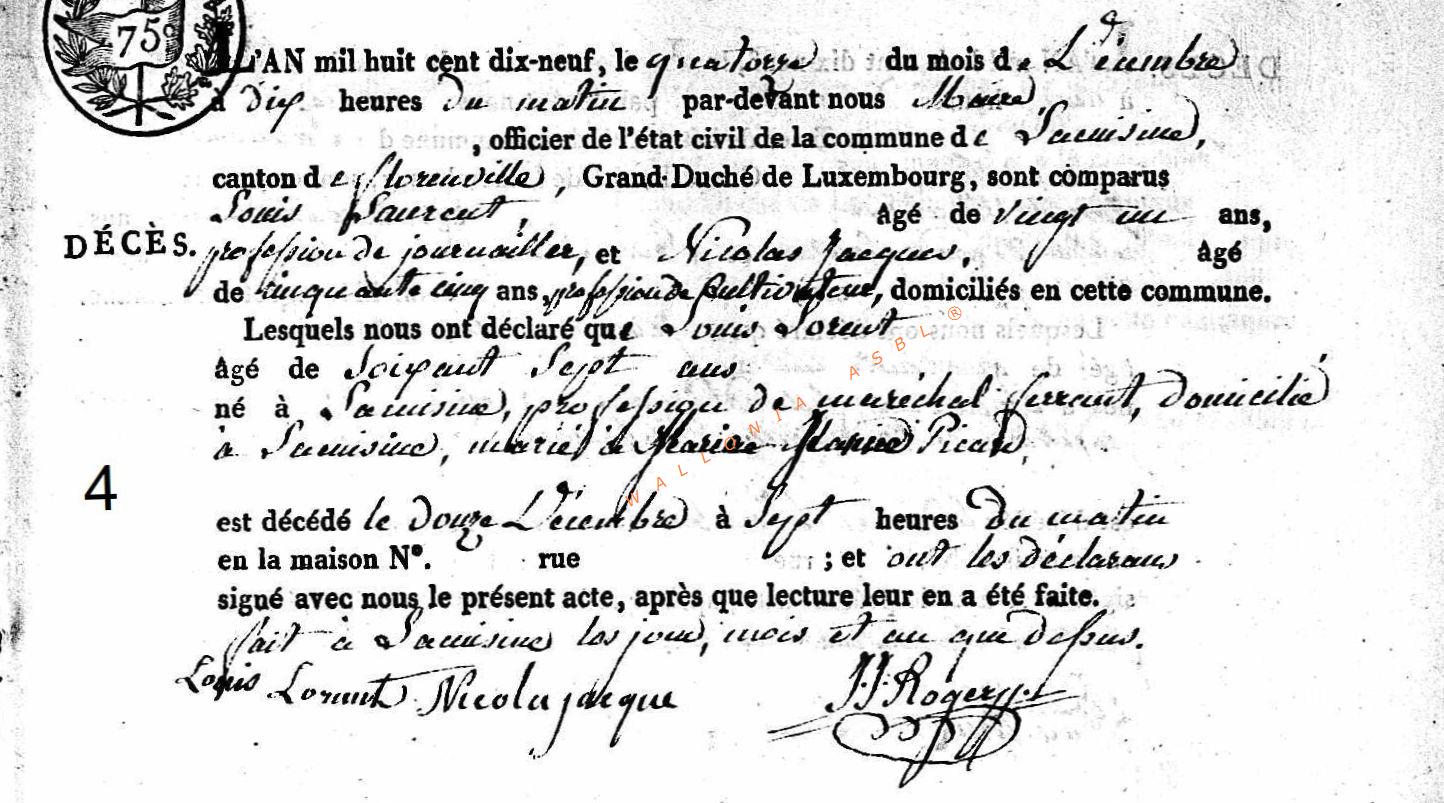 75c
L'AN mil huit cent dix-neuf, le quatorze du mois de Décembre
à dix heures du matin par-devant nous Maire,
, officier de l'état civil de la commune de
canton de florenville, Grand-Duché de Luxembourg, sont comparus
Louis Laurent, âgé de vingt un ans,
DÉCÈS. profession de journailler, et Nicolas Jacques, âgé
de cinquante cinq ans, profession de Cultivateur, domiciliés en cette commune.
Lesquels nous ont déclaré que Louis Lorent
âgé de soixant Sept ans
né à profession de maréchal ferrant, domicilié
à marié à Marie Picard,
4
est décédé le douze Décembre à Sept heures du matin
en la maison N°. rue ; et ont les déclarans
signé avec nous le présent acte, après que lecture leur en a été faite.
fait à les jour, mois et an que dessus.
Louis Lorent Nicolas jacque J.J. Roger
WALLONIA ASBL ®